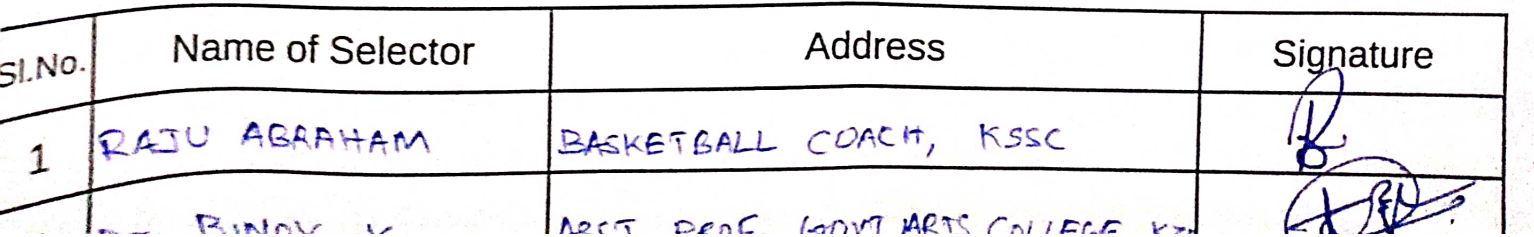 Sl.No. Name of Selector Address Signature
1 RAJU ABRAHAM BASKETBALL COACH, KSSC
BINOY K ASST PROF GOVT ARTS COLLEGE